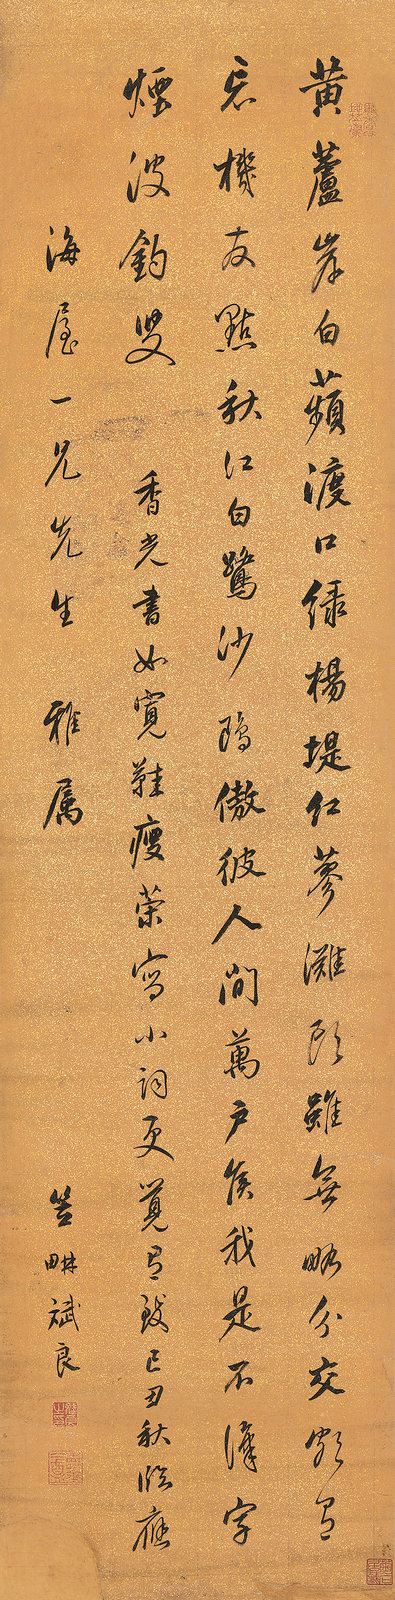 黄蘆岸白蘋渡口綠楊堤紅蓼灘頭雖無略分交頗有
忘機友點秋江白鷺沙鷗傲彼人間萬户侯我是不識字
煙波釣叟 香光書如寬鞋瘦寫小詞更覺有致己丑秋臨應
海屋一兄先生 雅属 笠畊斌良